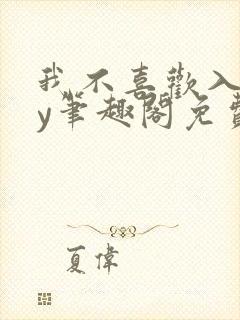 我不喜歡入
y筆趣閣免費
夏偉